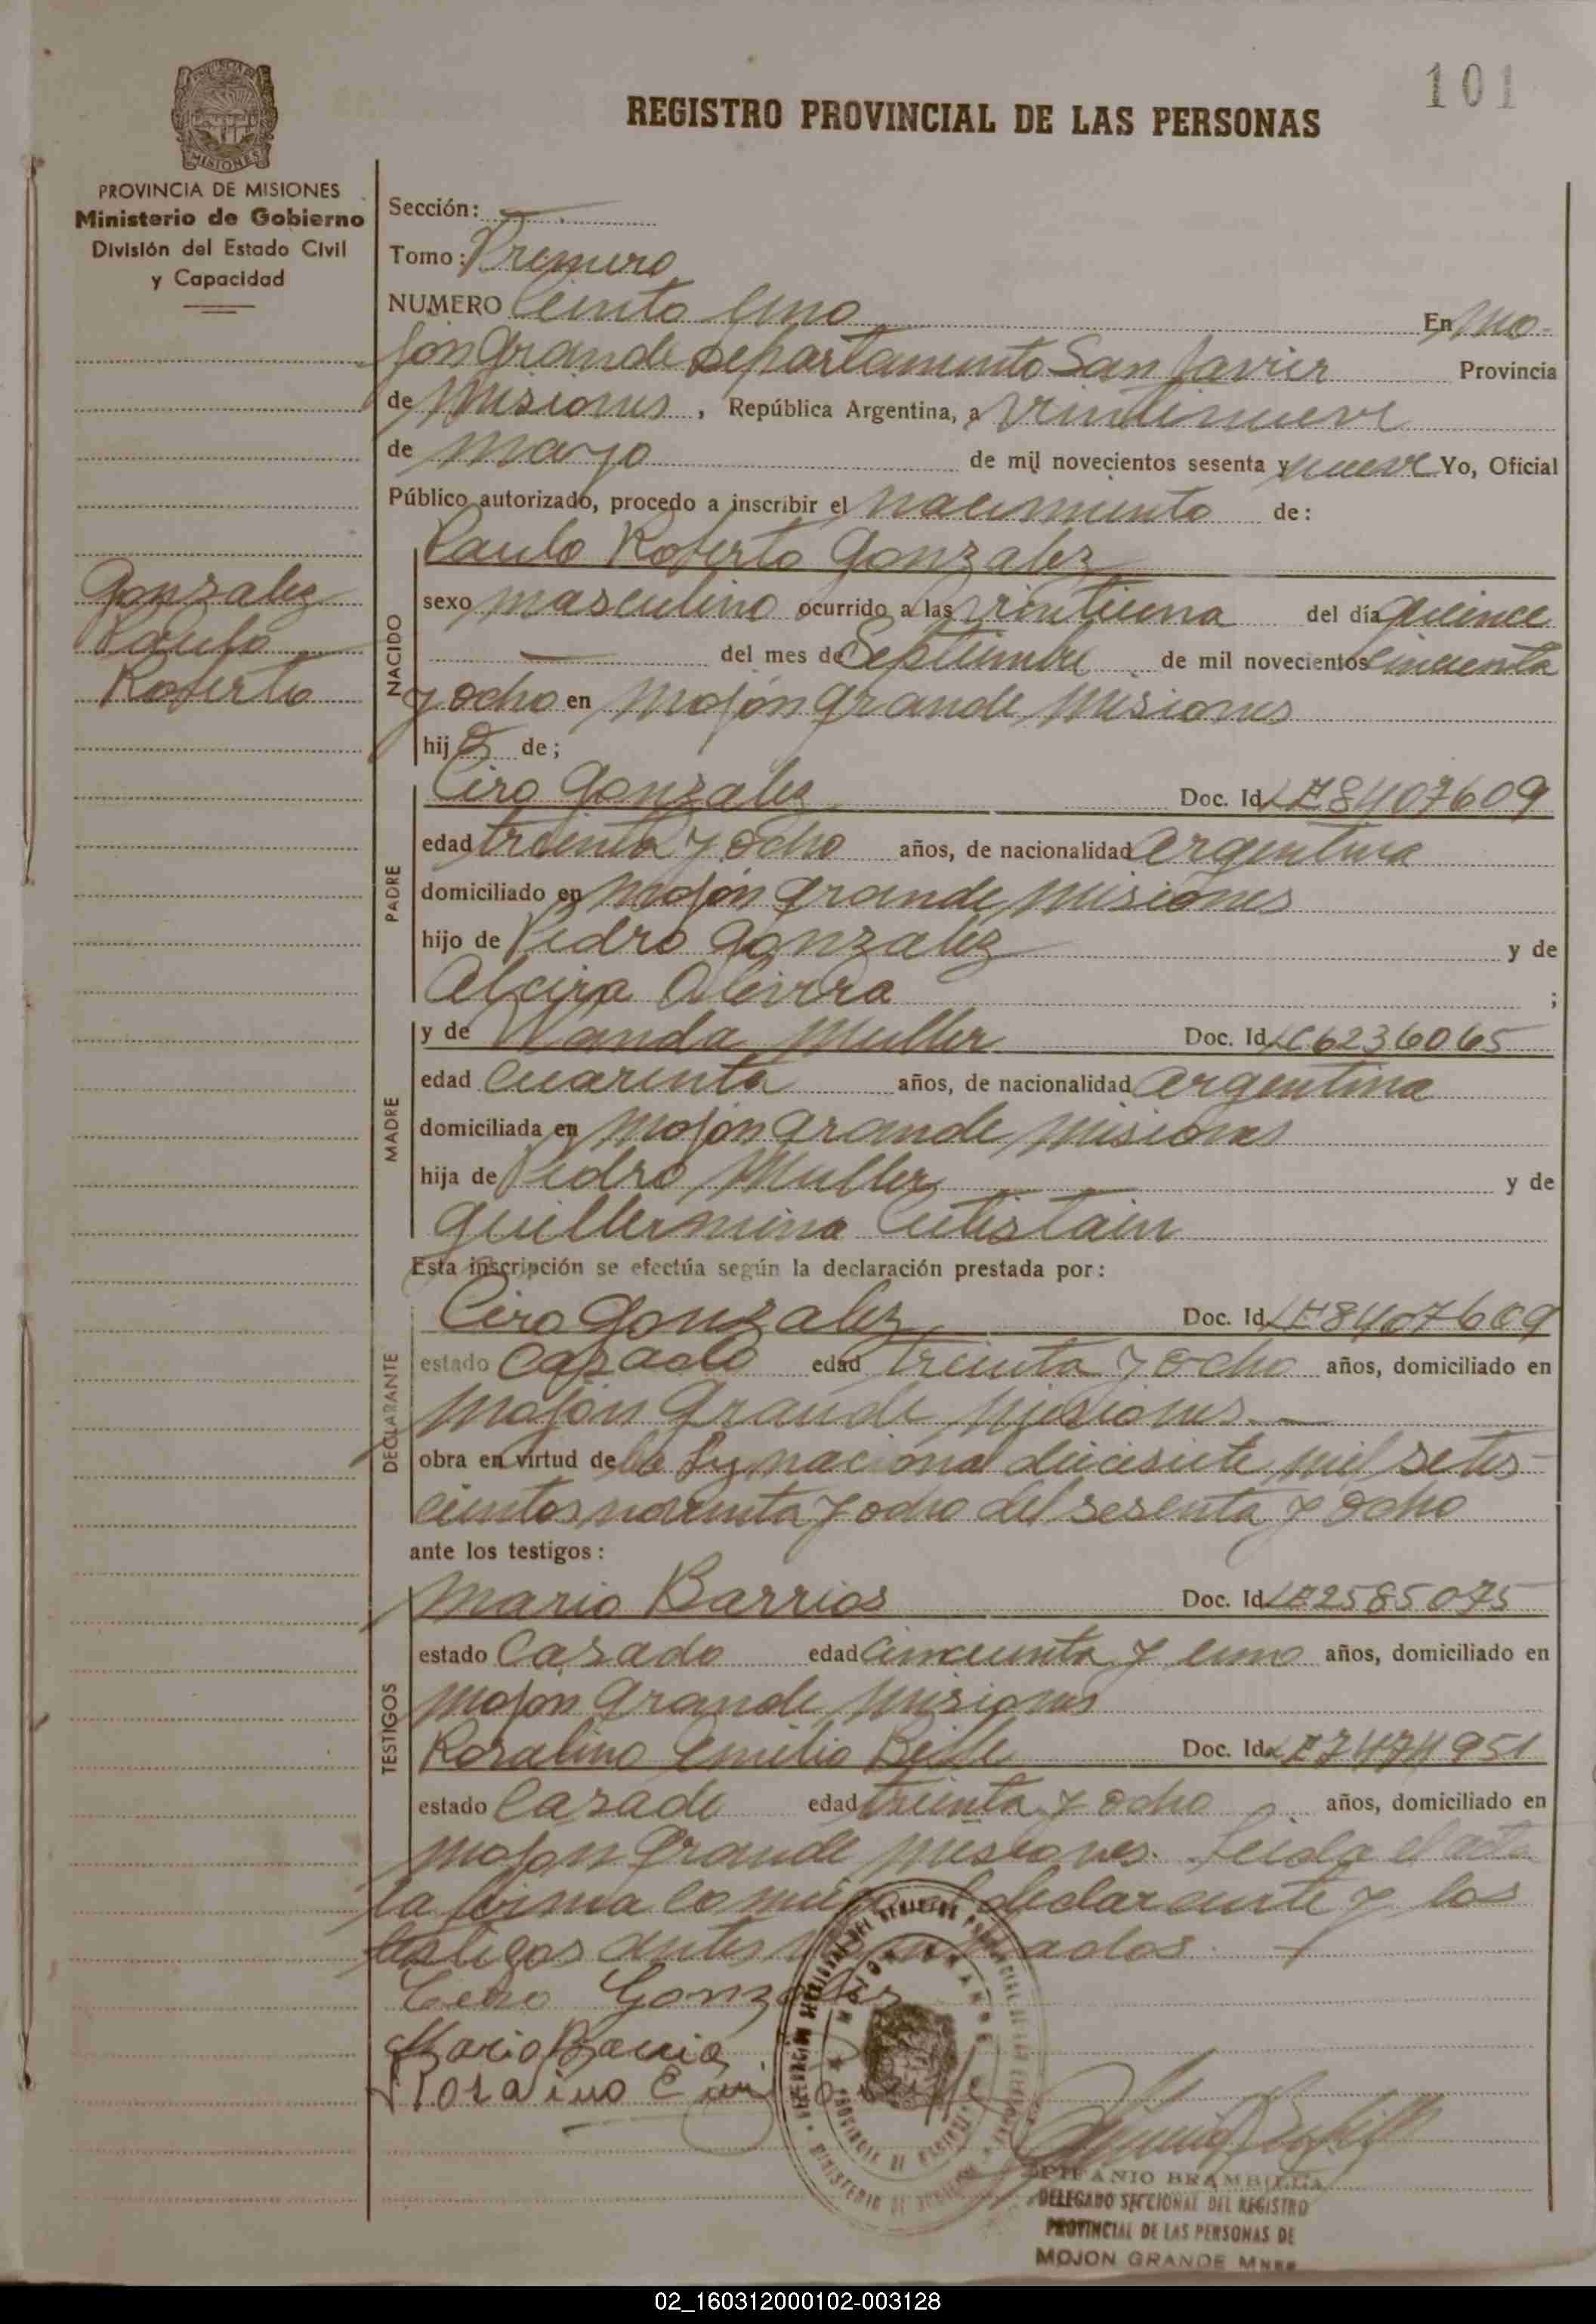 101
REGISTRO PROVINCIAL DE LAS PERSONAS
MISIONES
PROVINCIA DE MISIONES
Ministerio de Gobierno
División del Estado Civil
y Capacidad
Gonzalez
Paulo
Roberto
Sección:
Tomo: Primero
NUMERO Ciento Uno En Mo-
jón Grande Departamento San Javier Provincia
de Misiones, República Argentina, a veintinueve
de mayo de mil novecientos sesenta y nueve Yo, Oficial
Público autorizado, procedo a inscribir el nacimiento de:
NACIDO
Paulo Roberto Gonzalez
sexo masculino ocurrido a las veintiuna del día quince
— del mes de Septiembre de mil novecientos cincuenta
y ocho en Mojón Grande Misiones
hijo de;
PADRE
Ciro Gonzalez Doc. Id. LE 8407609
edad treinta y ocho años, de nacionalidad argentina
domiciliado en Mojón Grande Misiones
hijo de Pedro Gonzalez y de
Alcira ;
MADRE
y de Wanda Muller Doc. Id. LC 6236065
edad cuarenta años, de nacionalidad argentina
domiciliada en Mojón Grande Misiones
hija de Pedro Muller y de
Guillermina
Esta inscripción se efectúa según la declaración prestada por:
DECLARANTE
Ciro Gonzalez Doc. Id. LE 8407609
estado Casado edad treinta y ocho años, domiciliado en
Mojón Grande Misiones —
obra en virtud de la ley nacional diecisiete mil sete-
cientos noventa y ocho del sesenta y ocho
ante los testigos:
TESTIGOS
Mario Barrios Doc. Id. LE 2585075
estado Casado edad cincuenta y uno años, domiciliado en
Mojon Grande Misiones
Rosalino Emilio Doc. Id. LE 7474951
estado Casado edad treinta y ocho años, domiciliado en
Mojon Grande Misiones. Leida el acta
la firma conmigo el declarante y los
testigos antes nombrados.
Ciro Gonzalez
Mario Barrios
EPIFANIO BRAMBILLA
DELEGADO SECCIONAL DEL REGISTRO
PROVINCIAL DE LAS PERSONAS DE
MOJON GRANDE MNES
02_160312000102-003128